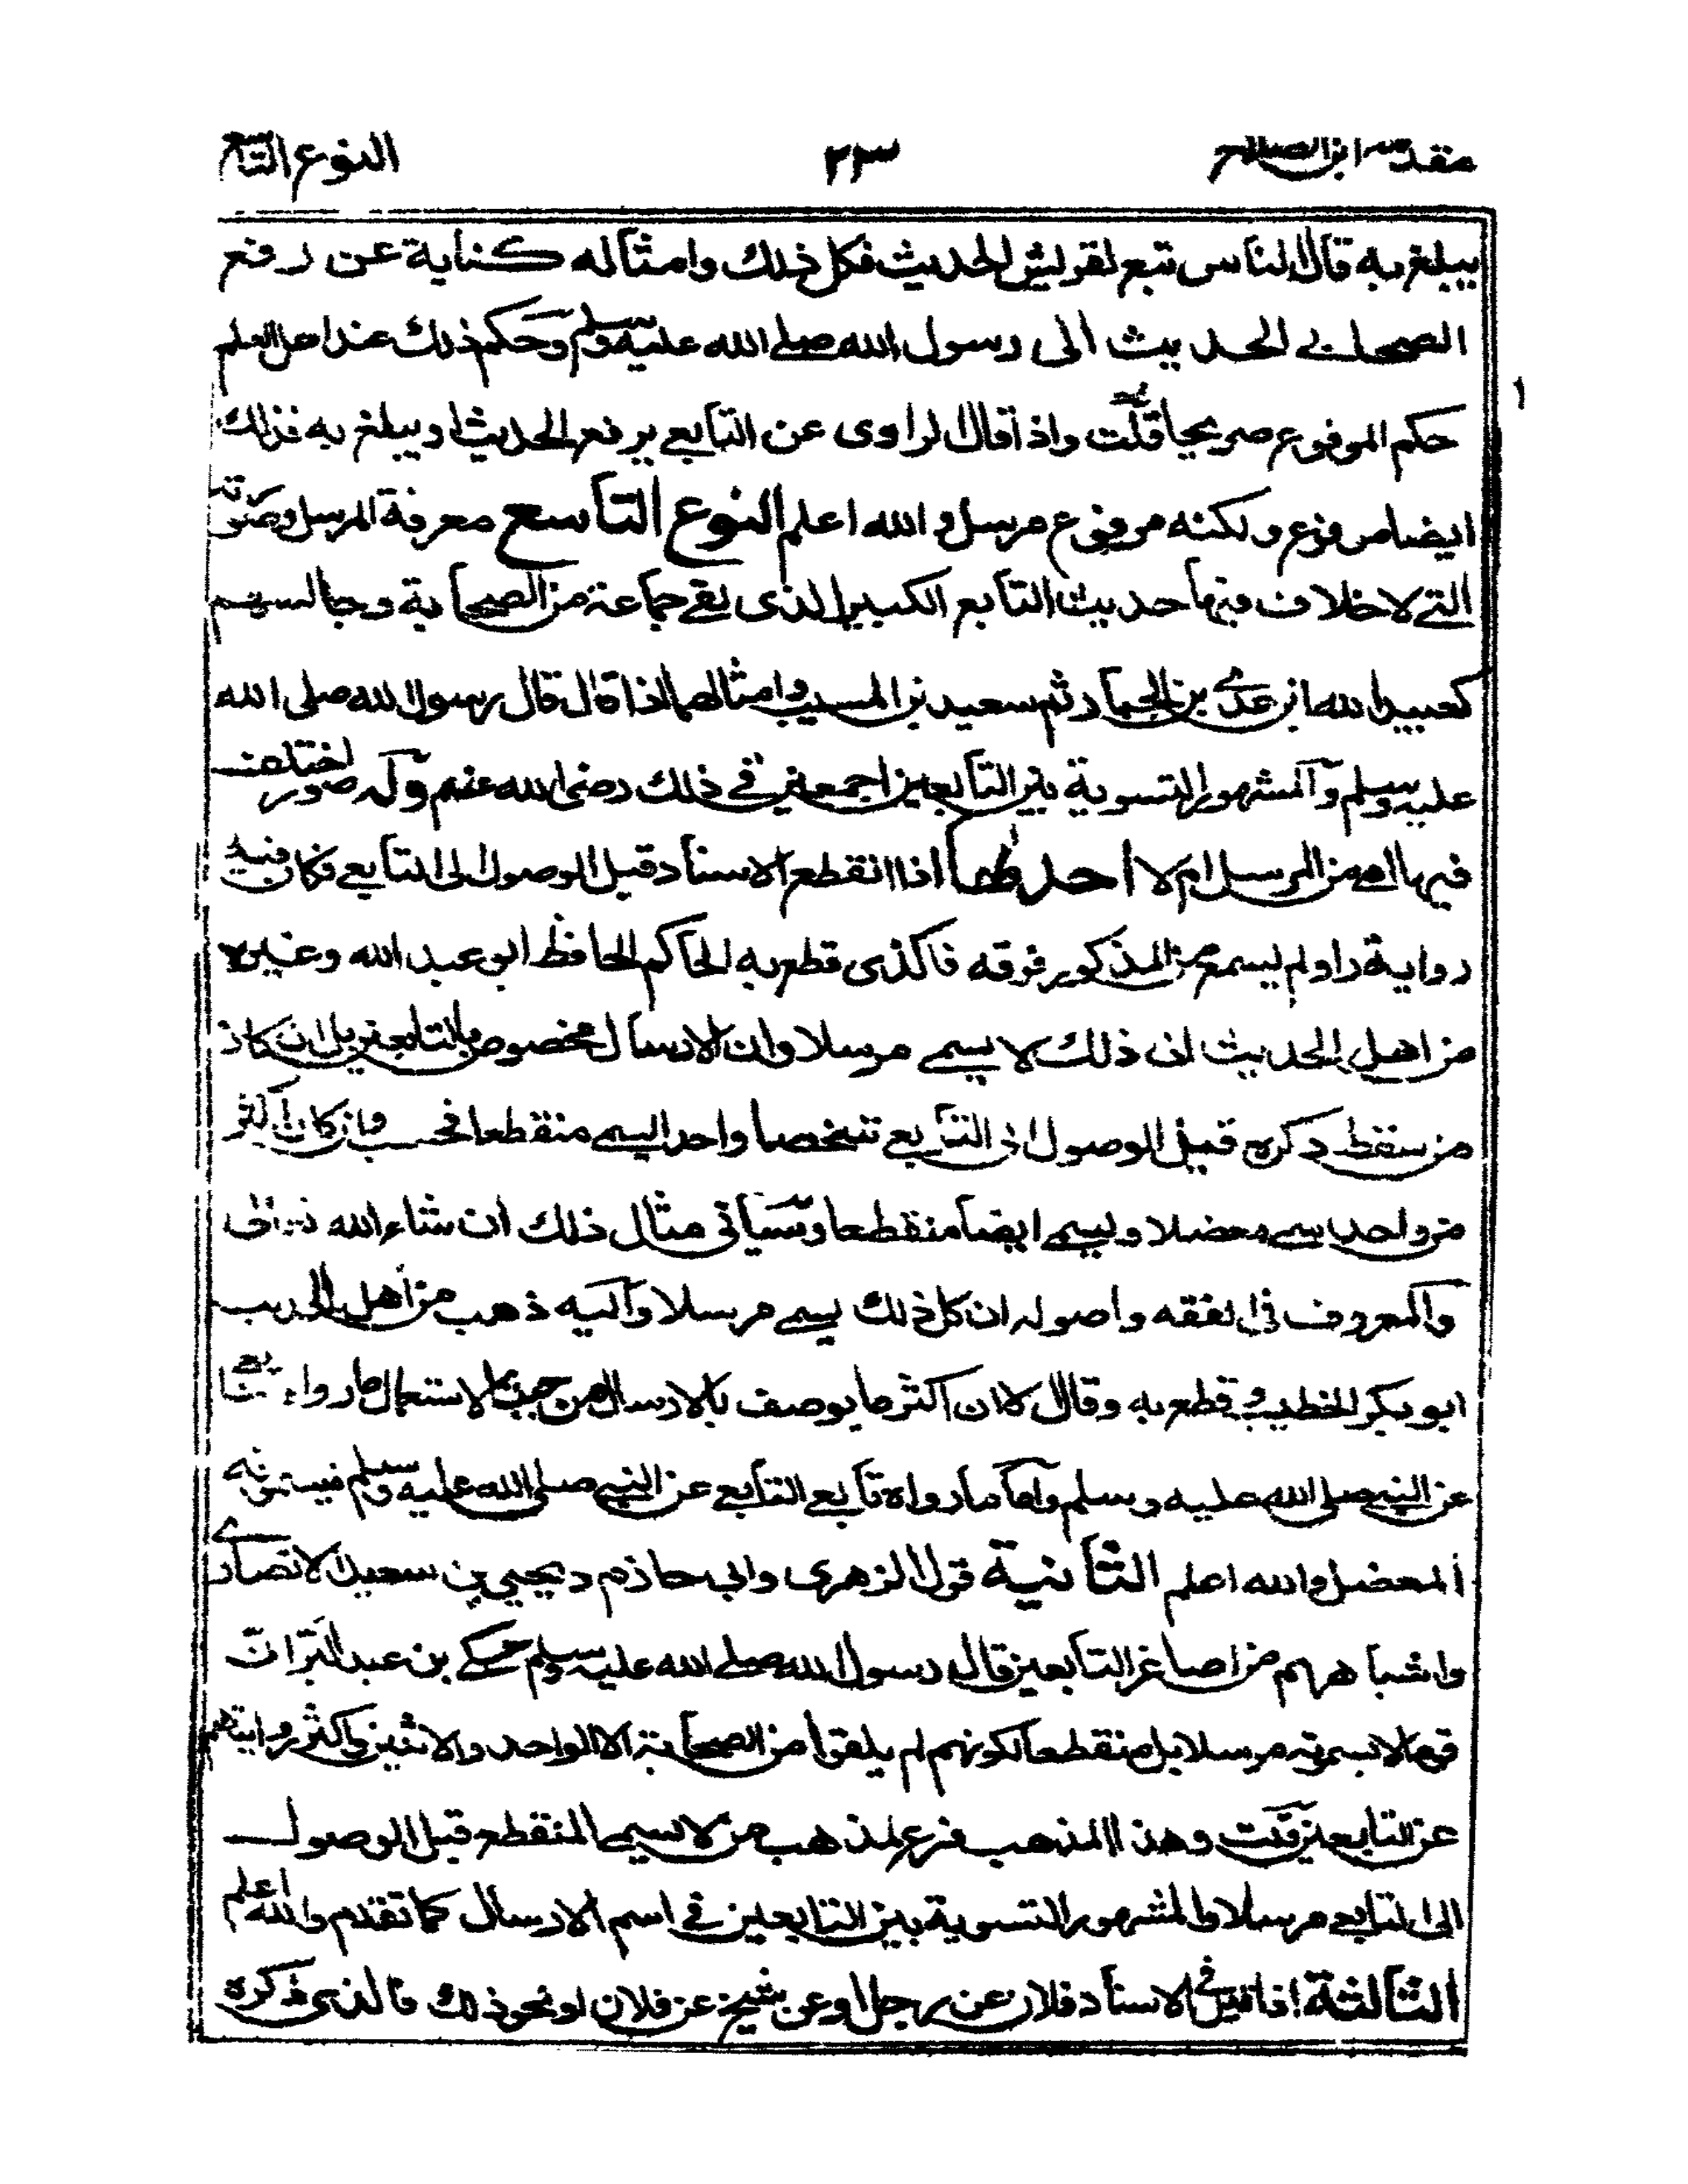 مقدمه ابن الصلاح
٢٣
النوع التاسع
يبلغ به قال الناس تبع لقريش الحديث فكل ذلك وامثاله كناية عن رفع
الصحابي الحديث الى رسول الله صلے الله عليه وسلم وحكم ذلك عند اهل العلم
حكم المرفوع صريحا قلت واذا قال الراوى عن التابعے يرفع الحديث او يبلغ به فذلك
ايضا مرفوع ولكنه مرفوع مرسل والله اعلم النوع التاسع معرفة المرسل وصورته
التے لا خلاف فيها حديث التابع الكبير الذى لقے جماعة من الصحابة وجالسهم
كعبيد الله ابن عدے بن الخيار ثم سعيد بن المسيب وامثالهما اذا قال قال رسول الله صلى الله
عليه وسلم والمشهور التسوية بين التابعين اجمعين فے ذلك رضى الله عنهم وله صور اختلف
فيها اهے من المرسل ام لا احدها اذا انقطع الاسناد قبل الوصول الى التابعے فكان فيه
رواية راو لم يسمع من المذكور فوقه فالذى قطع به الحاكم الحافظ ابو عبد الله وغيره
من اهل الحديث ان ذلك لا يسمے مرسلا وان الارسال مخصوص بالتابعين بل ان كان
من سقط ذكره قبل الوصول الى التابعے شخصا واحدا يسمے منقطعا فحسب وان كان اكثر
من واحد يسمے معضلا ويسمے ايضا منقطعا وسياتى مثال ذلك ان شاء الله تعالى
والمعروف فى الفقه واصوله ان كل ذلك يسمے مرسلا واليه ذهب من اهل الحديث
ابو بكر الخطيب وقطع به وقال الا ان اكثر ما يوصف بالارسال من حيث الاستعمال ما رواه التابعے
عن النبے صلى الله عليه وسلم واما ما رواه تابعے التابعے عن النبے صلى الله عليه وسلم فيسمونه
المعضل والله اعلم الثانية قول الزهرى وابى حازم ويحيى بن سعيد الانصارے
واشباههم من اصاغر التابعين قال رسول الله صلے الله عليه وسلم حكے بن عبد البر ان
قوما لا يسمونه مرسلا بل منقطعا لكونهم لم يلقوا من الصحابة الا الواحد والاثنين واكثر روايتهم
عن التابعين قلت وهذا المذهب فرع لمذهب من لا يسمے المنقطع قبل الوصول
الى التابعے مرسلا والمشهور التسوية بين التابعين فے اسم الارسال كما تقدم والله اعلم
الثالثة اذا قيل فے الاسناد فلان عن رجل او عن شيخ عن فلان او نحو ذلك فالذى ذكره